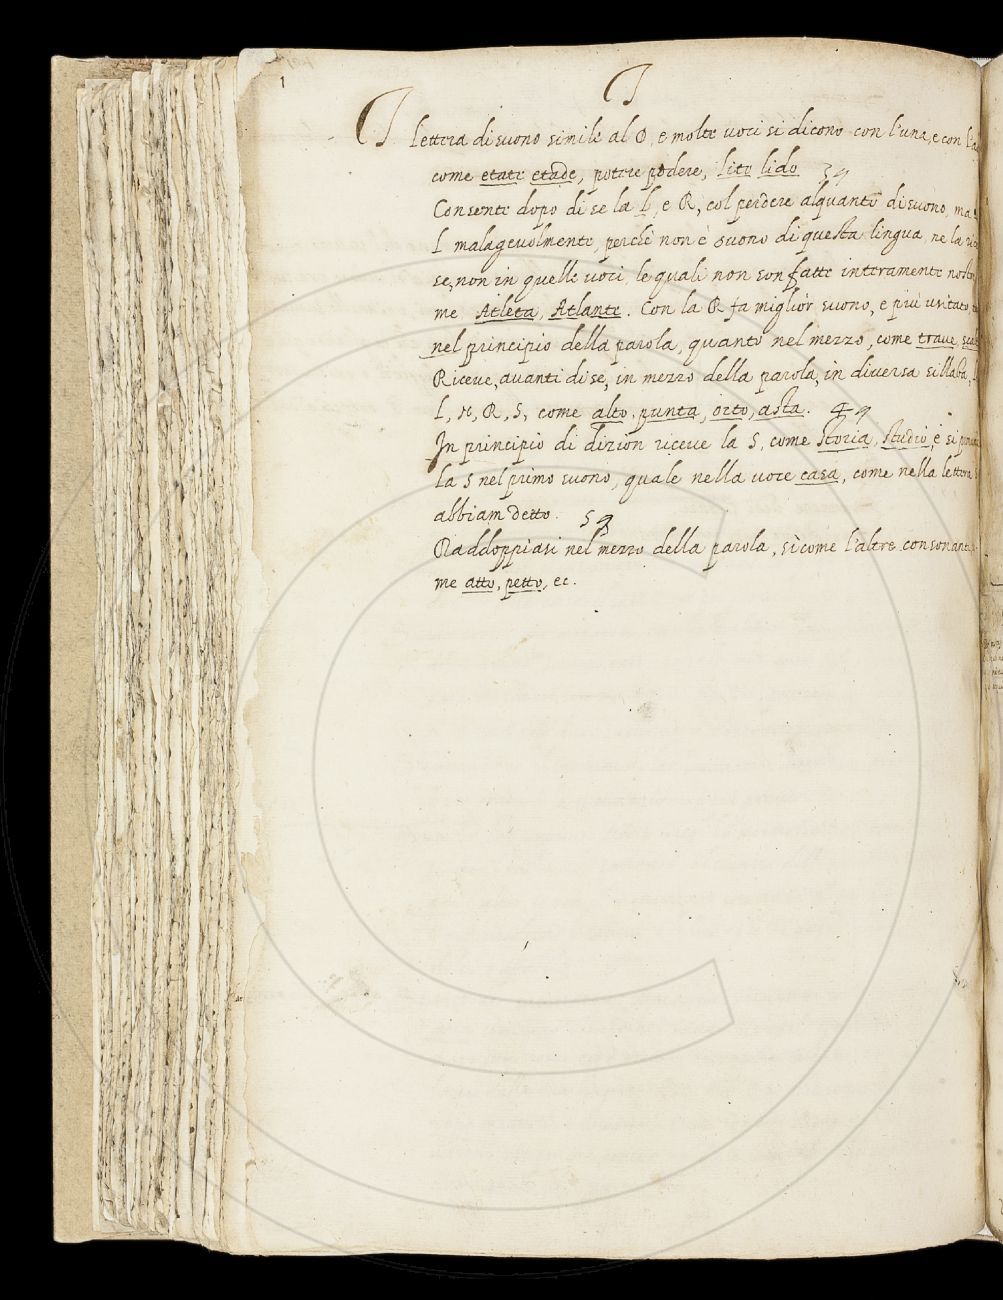 1
T
T. lettera di suono simile al D, e molte uoci si dicono con l'una, e con l'
come etate etade, potere podere, lito lido
Consente dopo di se la L, e R, col perdere alquanto di suono, ma
L malagevolmente, perchè non è suono di questa lingua, ne la
se, non in quelle uoci, le quali non son fatte interamente
me Atleta, Atlante. Con la R fa miglior suono, e piu usitato,
nel principio della parola, quanto nel mezzo, come traue,
Riceue, auanti di se, in mezzo della parola, in diuersa sillaba,
L, N, R, S, come alto, punta, orto, asta.
In principio di dizion riceue la S, come Storia, Studio, e si
La S nel primo suono, quale nella uoce casa, come nella lettera
abbiam detto.
Raddoppiasi nel mezzo della parola, sì come l'altre consonanti,
me atto, petto, ec.